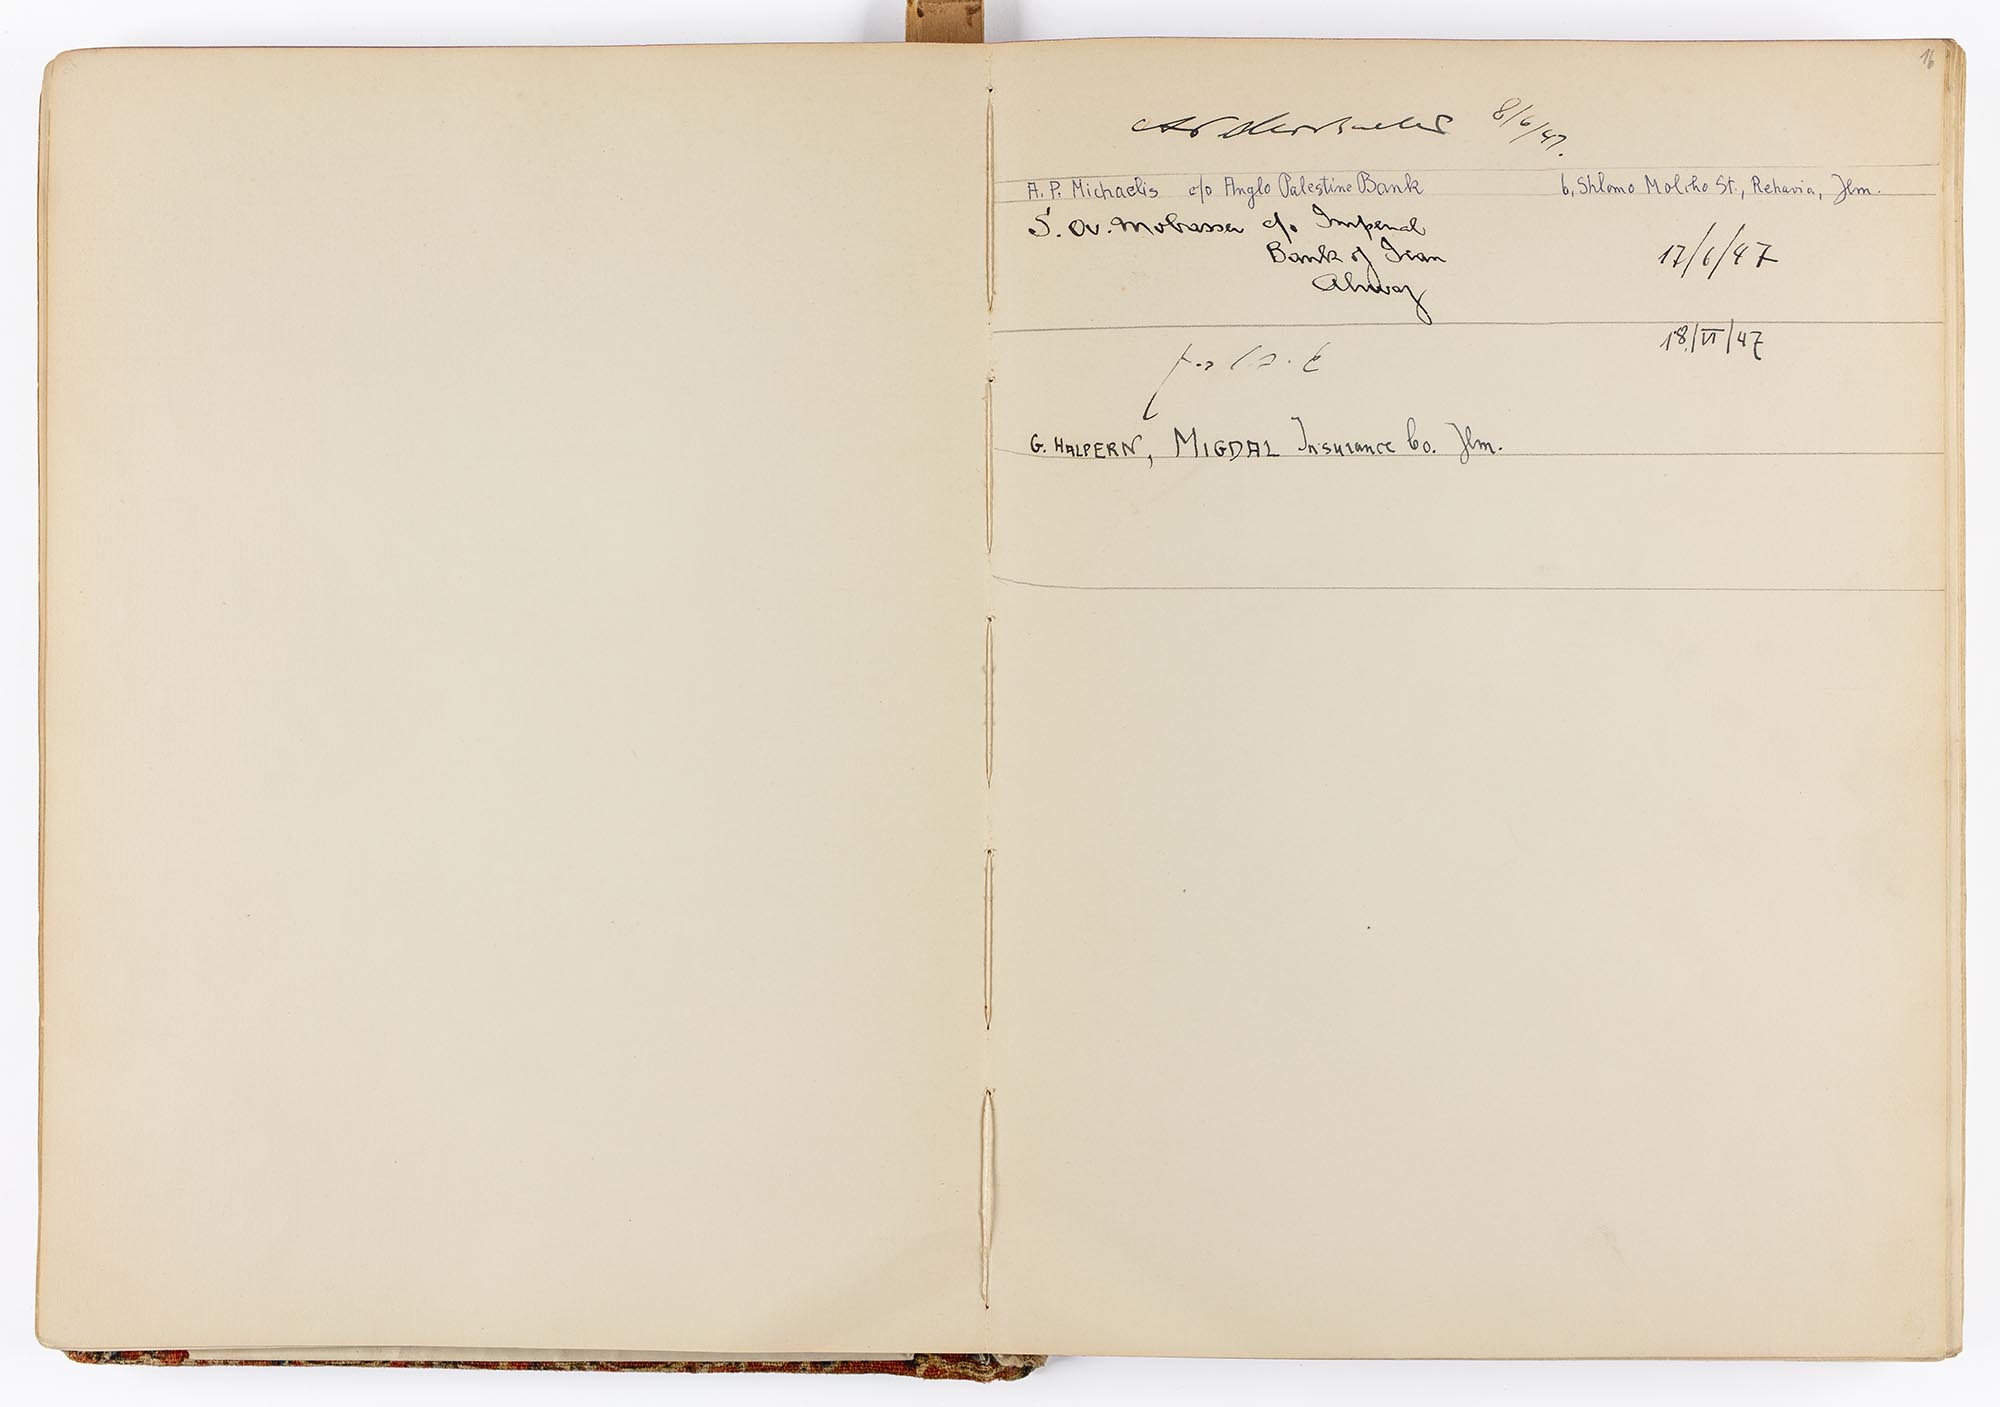 16
8/6/47.
A. P. Michaelis c/o Anglo Palestine Bank 6, Shlomo Molcho St., Rehavia, Jlm.
S. Av. Mobasser c/o Imperial
Bank of Iran 17/6/47
Ahwaz
18/VI/47
G. HALPERN, MIGDAL Insurance Co. Jlm.